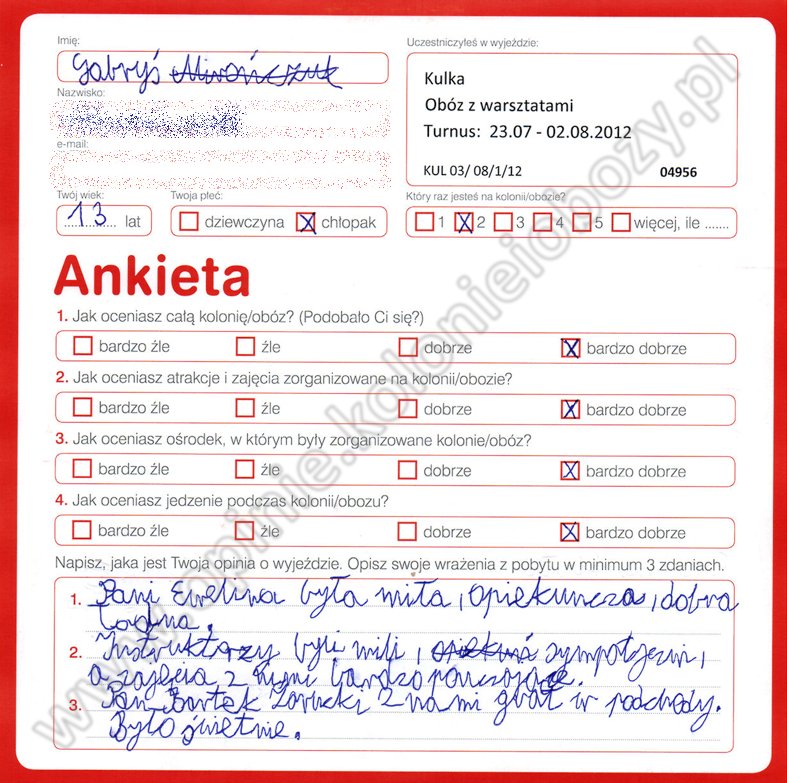 Imię:
Uczestniczyłeś w wyjeździe:
Gabryś
Kulka
Nazwisko:
Obóz z warsztatami
Turnus: 23.07 - 02.08.2012
e-mail:
KUL 03/ 08/1/12 04956
Twój wiek: Twoja płeć: Który raz jesteś na kolonii/obozie?
13 lat dziewczyna chłopak 1 2 3 4 5 więcej, ile .......
Ankieta
1. Jak oceniasz całą kolonię/obóz? (Podobało Ci się?)
bardzo źle źle dobrze bardzo dobrze
2. Jak oceniasz atrakcje i zajęcia zorganizowane na kolonii/obozie?
bardzo źle źle dobrze bardzo dobrze
3. Jak oceniasz ośrodek, w którym były zorganizowane kolonie/obóz?
bardzo źle źle dobrze bardzo dobrze
4. Jak oceniasz jedzenie podczas kolonii/obozu?
bardzo źle źle dobrze bardzo dobrze
Napisz, jaka jest Twoja opinia o wyjeździe. Opisz swoje wrażenia z pobytu w minimum 3 zdaniach.
1. Pani Ewelina była miła, opiekuńcza, dobra
ładna.
2. Instruktorzy byli mili, sympatyczni,
a zajęcia z nimi bardzo pouczające.
3. Pan Bartek z nami grał w podchody.
Było świetnie.
www.opinie.kolonieiobozy.pl